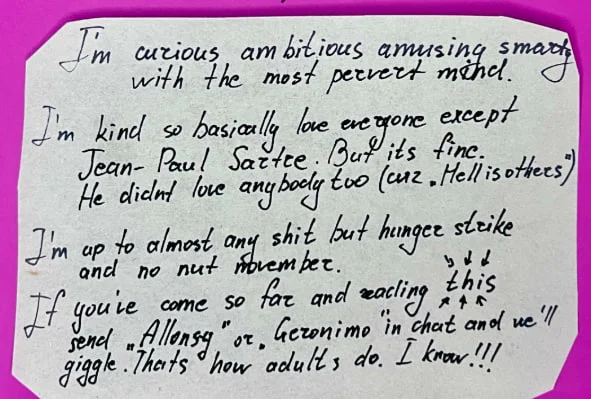 I'm curious ambitious amusing smarty
with the most pervert mind.
I'm kind so basically love everyone except
Jean-Paul Sartre. But its fine.
He didnt love anybody too (cuz „Hell is others")
I'm up to almost any shit but hunger strike
and no nut november.
If you've come so far and reading this
send „Allonsy" or „Geronimo" in chat and we'll
giggle. Thats how adults do. I know!!!